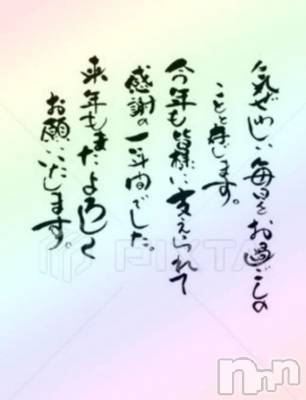 気ぜわしい毎日をお過ごしの
ことと存じます。
今年も皆様に支えられて
感謝の一年間でした。
来年もまたよろしく
お願いいたします。
PIXTA